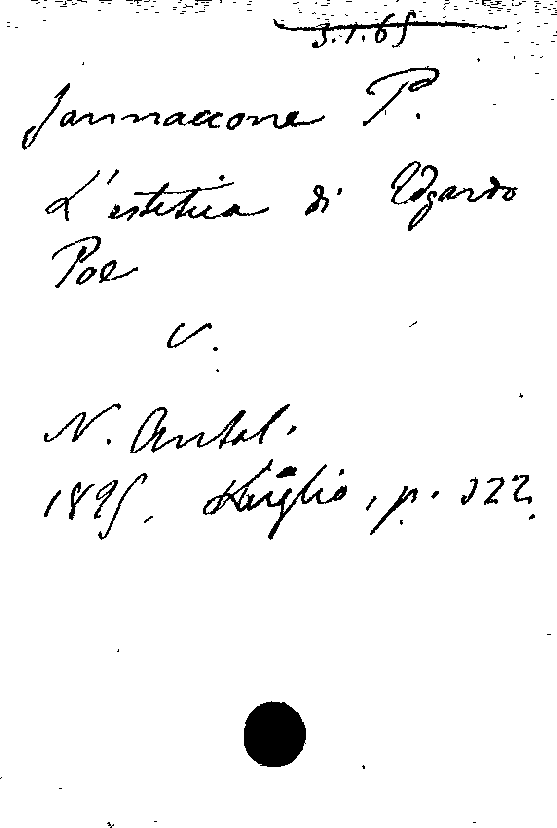 3.1.65
Jannaccone P.
L'estetica di Edgardo
Poe
V.
N. Antol.
1895. Luglio, p. 322.